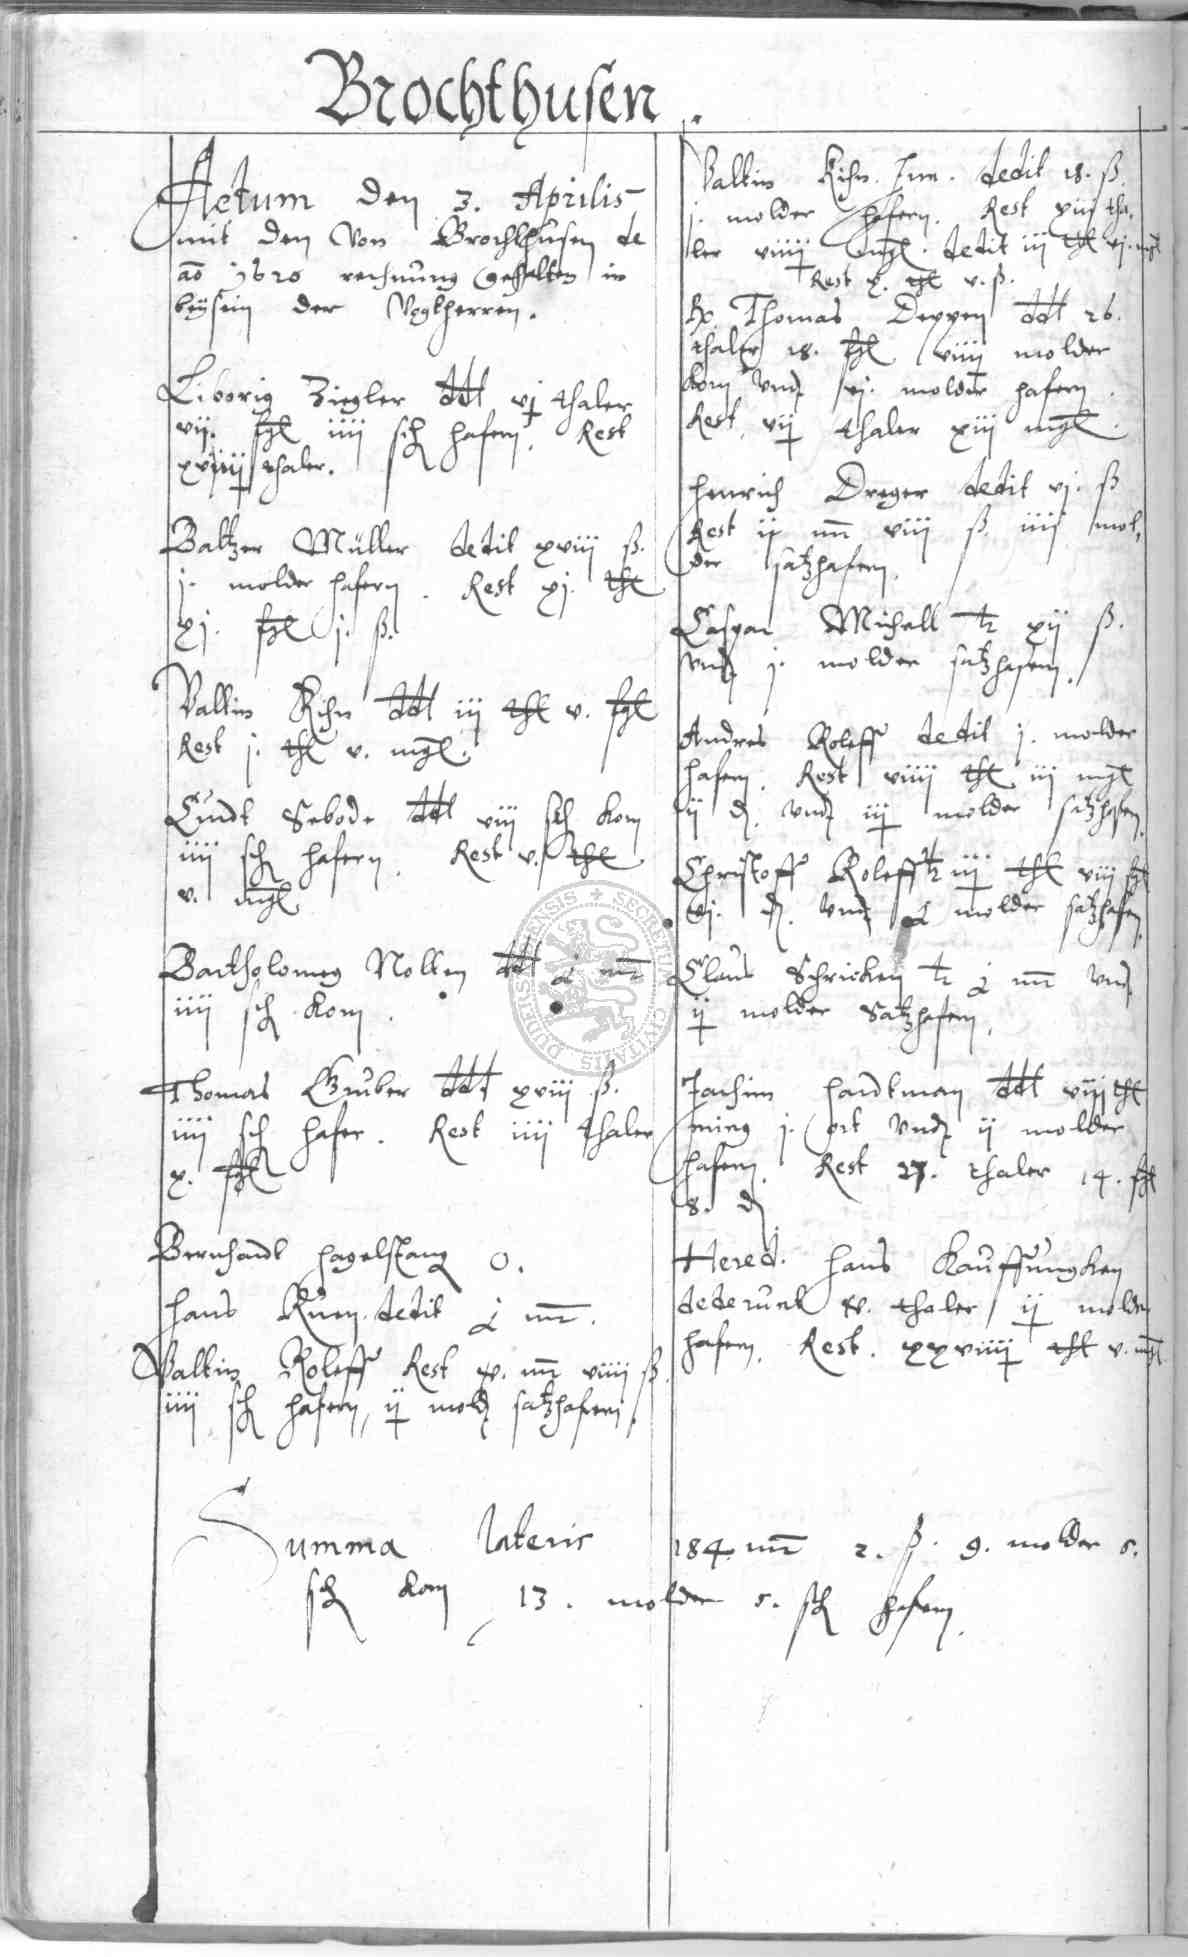 Brochthusen.
Actum den 3. Aprilis
mit den Von Brochthusen de
ao 1620 rechnung gehalten in
beÿsein der Vogtherren.
Liborig Ziegler ddt vj thaler
vij. fgl iiii sch hafern. Rest
thaler.
Baltzer Müller dedit xviii ß.
j. molder hafern. Rest xj. thl
xj. fgl j. ß.
Valtin Kihn ddt iij thl v. fgl
Rest j. thl v. mgl.
Curdt Sebode ddt viii sch Korn
iiii sch hafern. Rest v. thl
v. mgl
Bartholomeg Nolten ddt
iiii sch Korn.
Thomas Gruber ddt xviii ß.
iiii sch hafer. Rest iiii thaler
x. fgl
Bernhardt Hagelstang 0.
Hans Kuen dedit mr.
Valtin Roleff Rest mr viiii ß.
iiii sch hafern, ij mold satzhafern.
Valtin Kihn Jun. dedit 18. ß.
j. molder hafern. Rest xiii tha,
ler viiii mgl. dedit iij thl vj. mgl
Rest x. thl v. ß.
Thomas Deppen ddt 26.
thaler 18. fgl viiii molder
Korn Vnd vj. molder hafern.
Rest vij thaler xiii mgl.
Henrich Dreger dedit vj. ß
Rest ij mr viii ß. iiii mol,
der satzhafern.
Caspar Michall tr xij ß.
Vnd j. molder satzhafern.
Andres Roleff dedit j. molder
hafern. Rest viiii thl iii mgl
ii d. Vnd iij molder satzhafern.
Christoff Roleff tr iij thl viii fgl
vj. d. Vnd molder satzhafern.
Claus Schricken tr mr Vnd
ij molder Satzhafern.
Jachim Hardtman ddt viij thl
ming j. ort Vnd ij molder
hafern. Rest 27. thaler 14. fgl
8. d
Hered. Hans Kauffungken
dederunt thaler ij molder
hafern. Rest. xxviiij thl v. mgl
Summa lateris 184. mr 2. ß. 9. molder 5.
sch Korn 13. molder 5. sch hafern.
DUDERSTADENSIS SECRETUM CIVITATIS